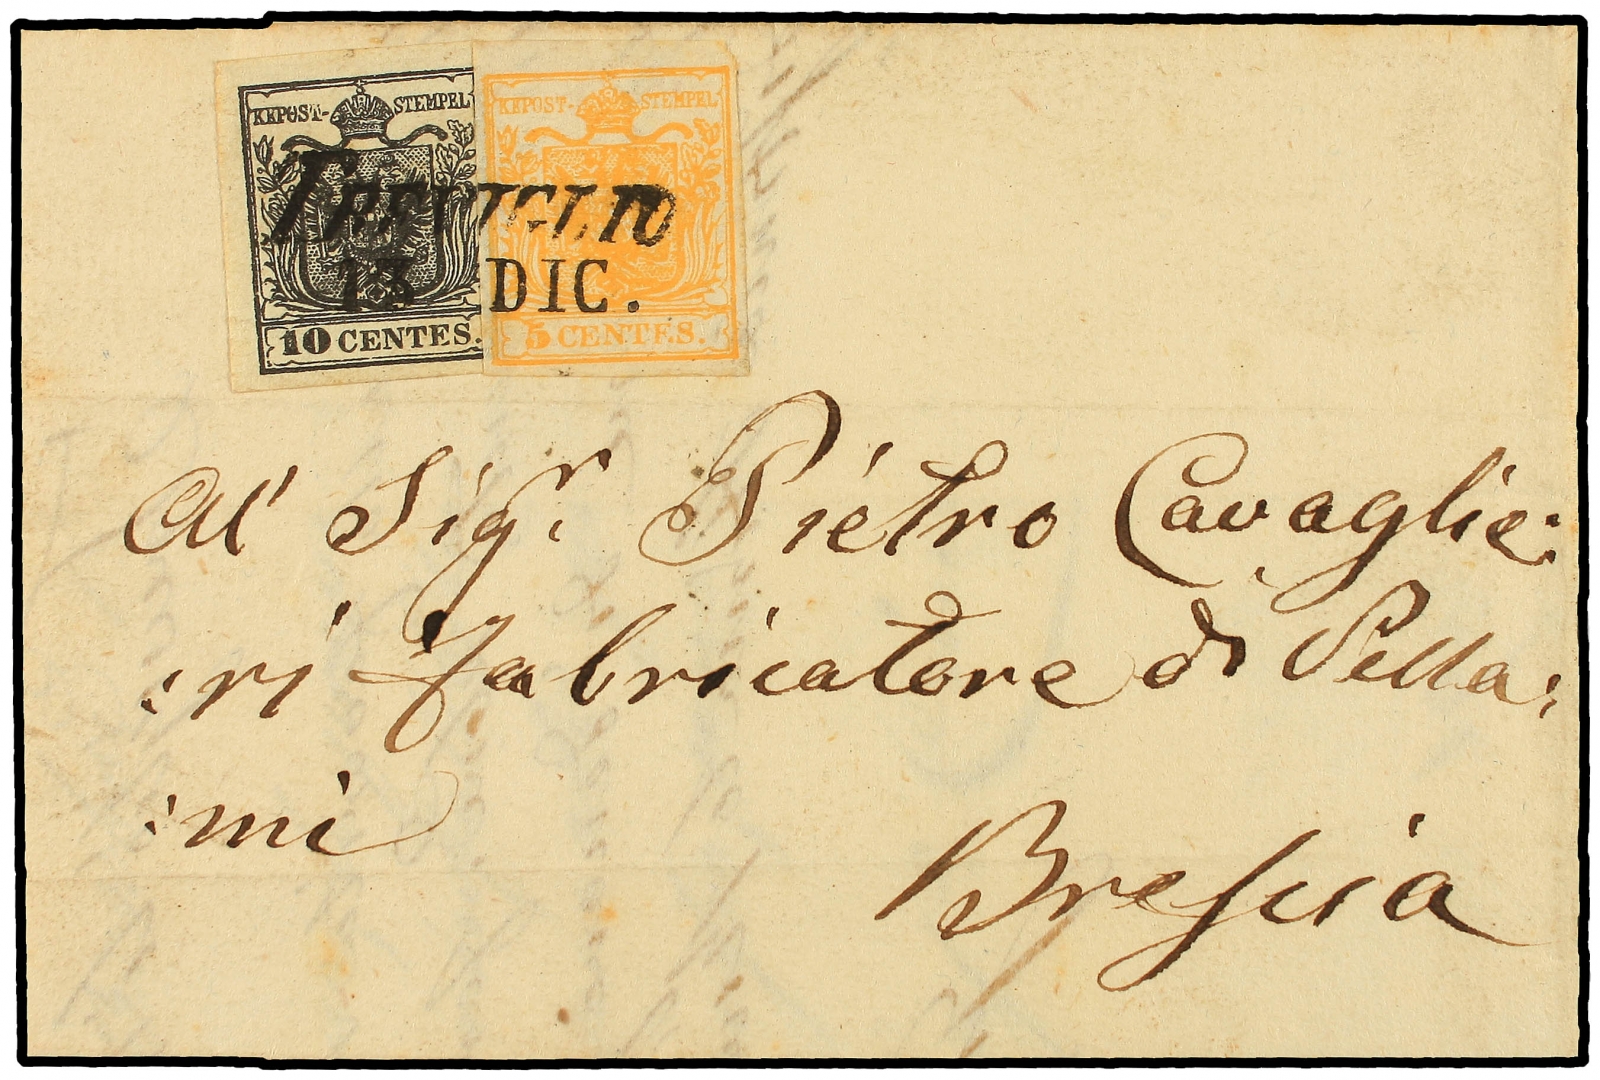 KKPOST- STEMPEL KKPOST- STEMPEL
TREVIGLIO
13 DIC.
10 CENTES. 5 CENTES.
Al Sigr. Piétro Cavaglie:
:ri Fabricatore di Pella:
:mi
Brescia